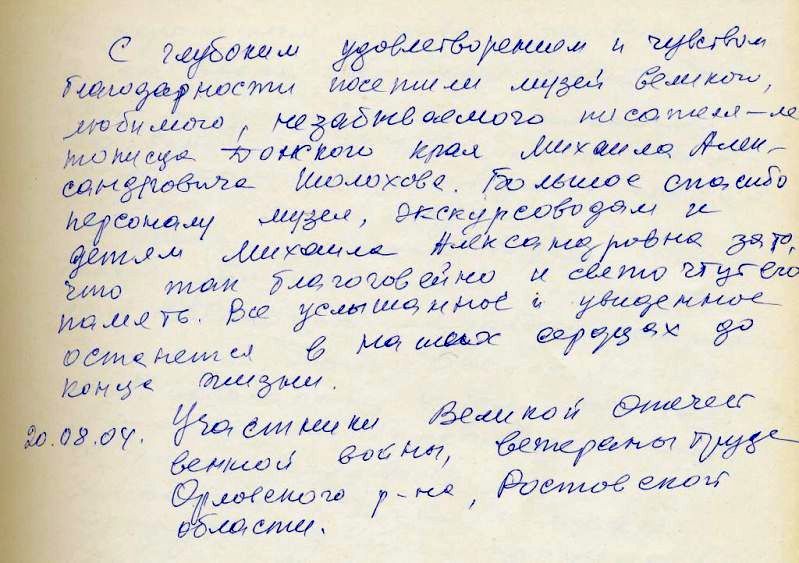 С глубоким удовлетворением и чувством
благодарности посетили музей великого,
любимого, незабываемого писателя-ле
тописца Донского края Михаила Алек-
сандровича Шолохова. Большое спасибо
персоналу музея, экскурсоводам и
детям Михаила Александровна за то,
что так благоговейно и свято чтут его
память. Все услышанное и увиденное
останется в наших сердцах до
конца жизни.
20.08.04. Участники Великой Отечест
венной войны, ветераны труда
Орловского р-на, Ростовской
области.